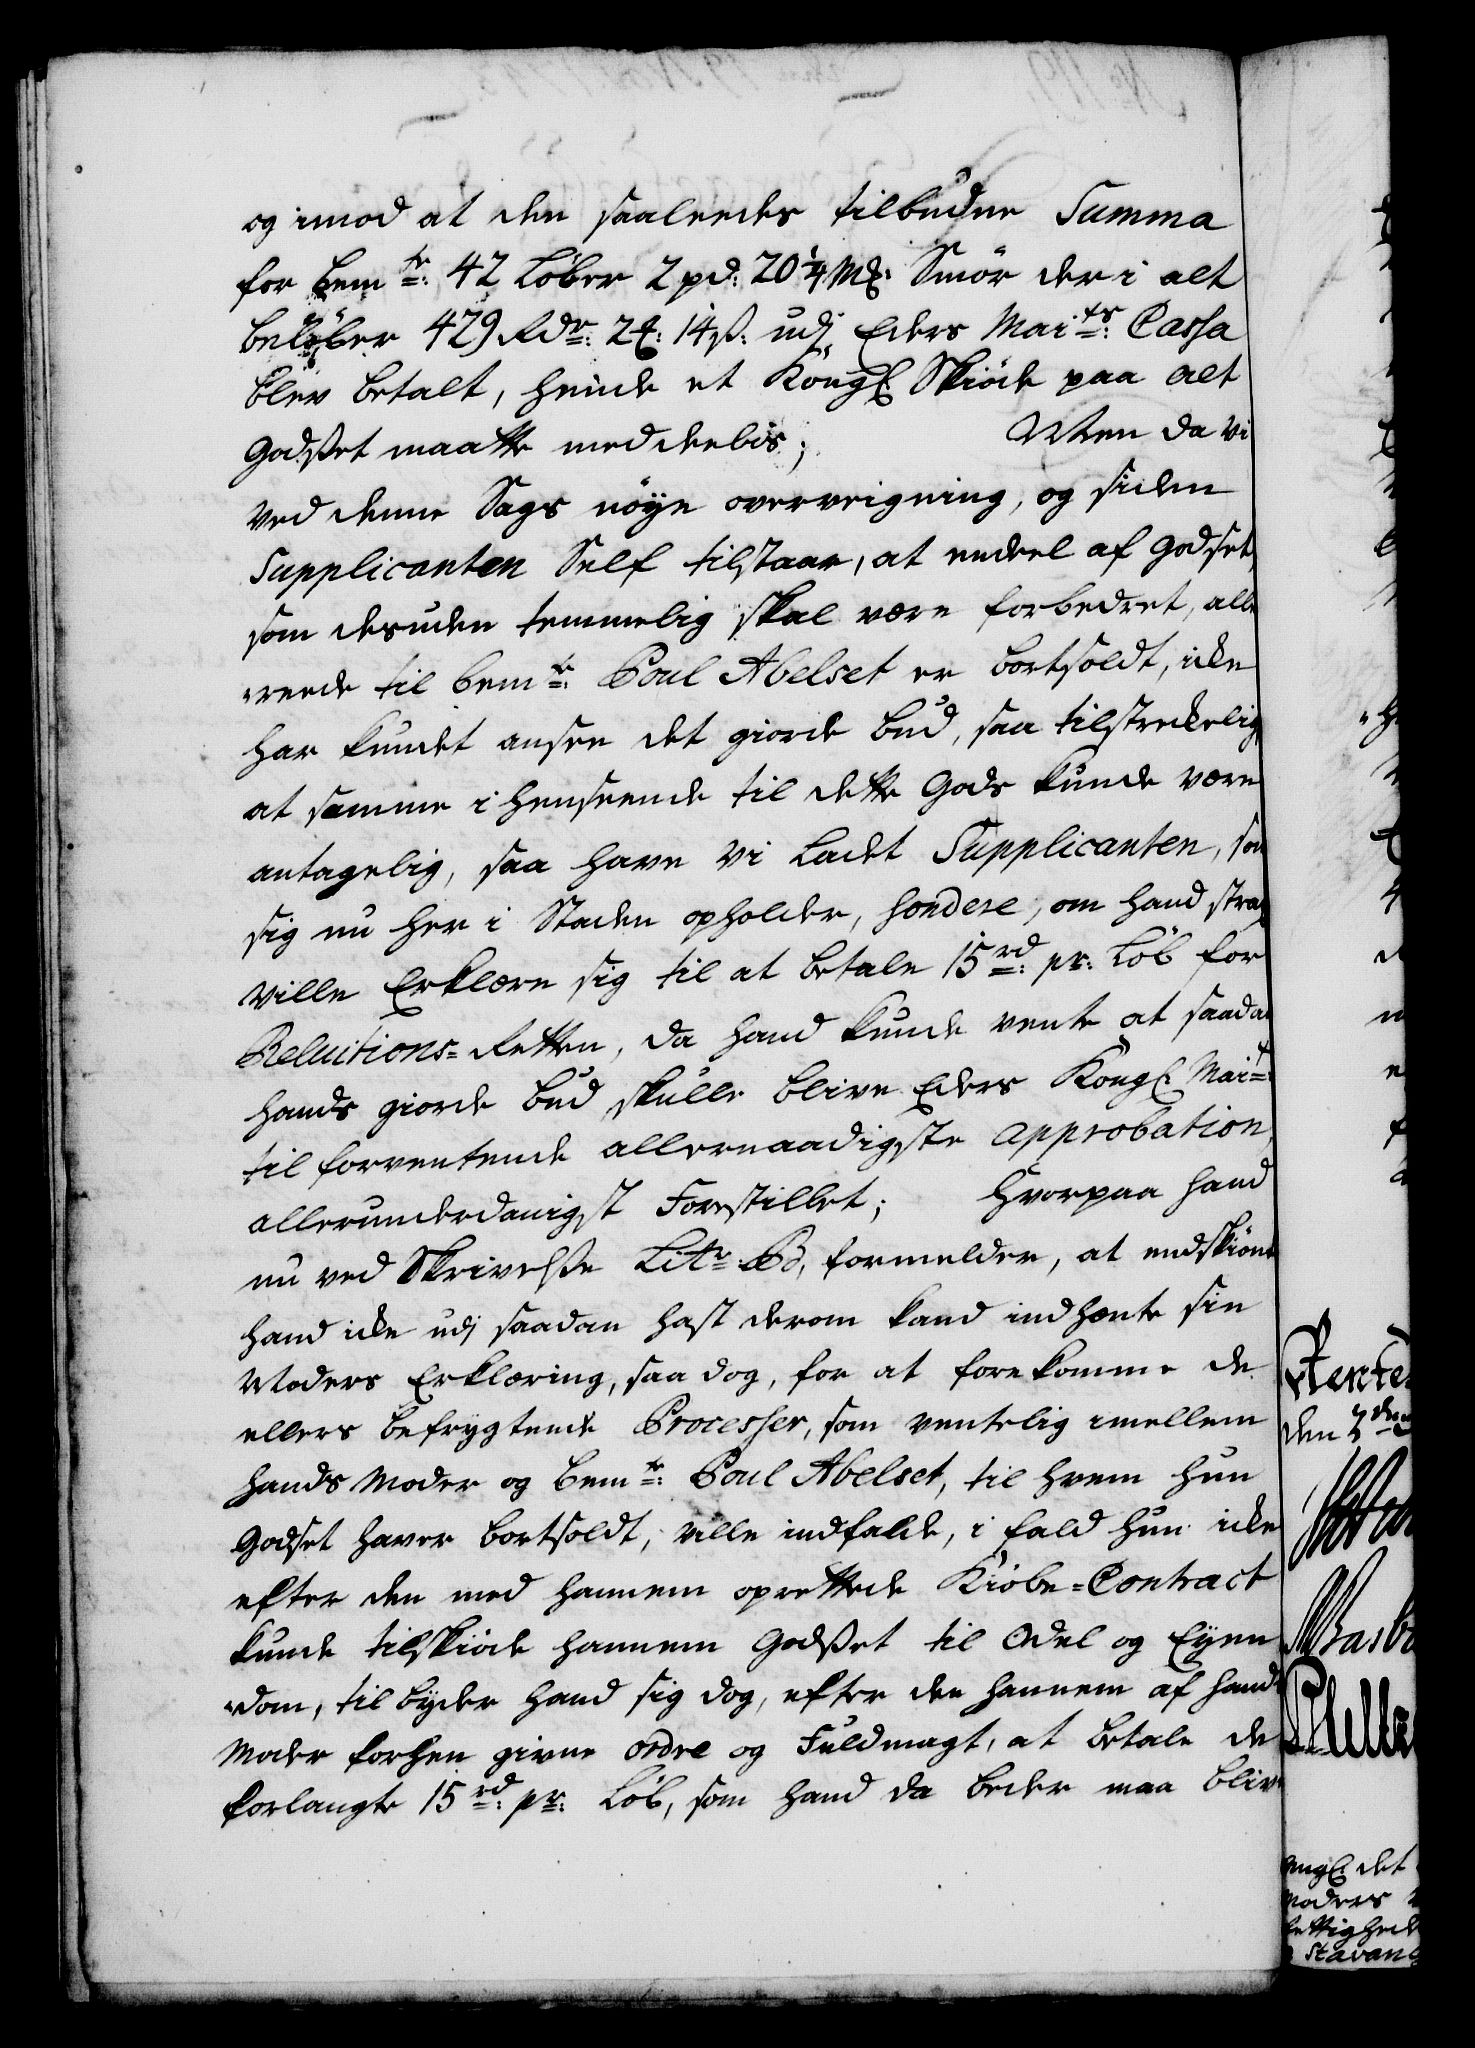 og imod at den saaledes tilbudne Summa
for bem.te: 42 Løber 2 pd: 20 1/4 Mk: Smør der i alt
beløber 429 Rdr: 2 mk: 14 ß: udj Eders Maits: Cassa
blev betalt, hende et Kongl: Skiøde paa alt
Godset maatte meddeelis; Men da vi
ved denne Sags nøye overveigning, og siden
Supplicanten Self tilstaar, at endeel af Godset,
som desuden temmelig skal være forbedret, alle
reede til bemte: Poul Abelset er bortsoldt, icke
har kundet ansee det giorde bud, saa tilstreckelig
at samme i henseende til dette Gods kunde være
antagelig, saa have vi Ladet Supplicanten, som
sig nu her i Staden opholder, sondere, om hand strax
ville Erklære sig til at betale 15 rd: pr: Løb for
Reluitions-Retten, da hand kunde vente at saadan
hands giorde bud skulle blive Eders Kongl: Mait:
til forventende allernaadigste approbation,
allerunderdanigst Forestillet; Hvorpaa hand
nu ved Skrivelse Litr: B, formelder, at endskiønt
hand icke udj saadan hast derom kand indhente sin
Moders Erklæring, saa dog, for at forekomme de
ellers befrygtende Processer, som ventelig imellem
hands Moder og bemte: Poul Abelset, til hvem hun
Godset haver bortsoldt, ville indfalde, i fald hun icke
efter den med hannem oprettede Kiøbe-Contract
kunde tilskiøde hannem Godset til Odel og Eyen
dom, tilbyder hand sig dog, efter den hannem af hands
Moder forhen givne ordre og Fuldmagt, at betale de
forlangte 15 rd: pr: Løb, som hand da beder maa blive
Rente
den 2den
Kongl: det
Moders
Rettighed
Stavan